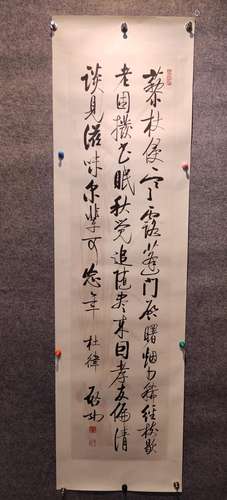 藜杖侵寒露蓬门启曙烟力稀经树歇
老困撥书眠秋觉追随尽来因孝友偏清
谈见滋味尔辈可忘年 杜律 启功